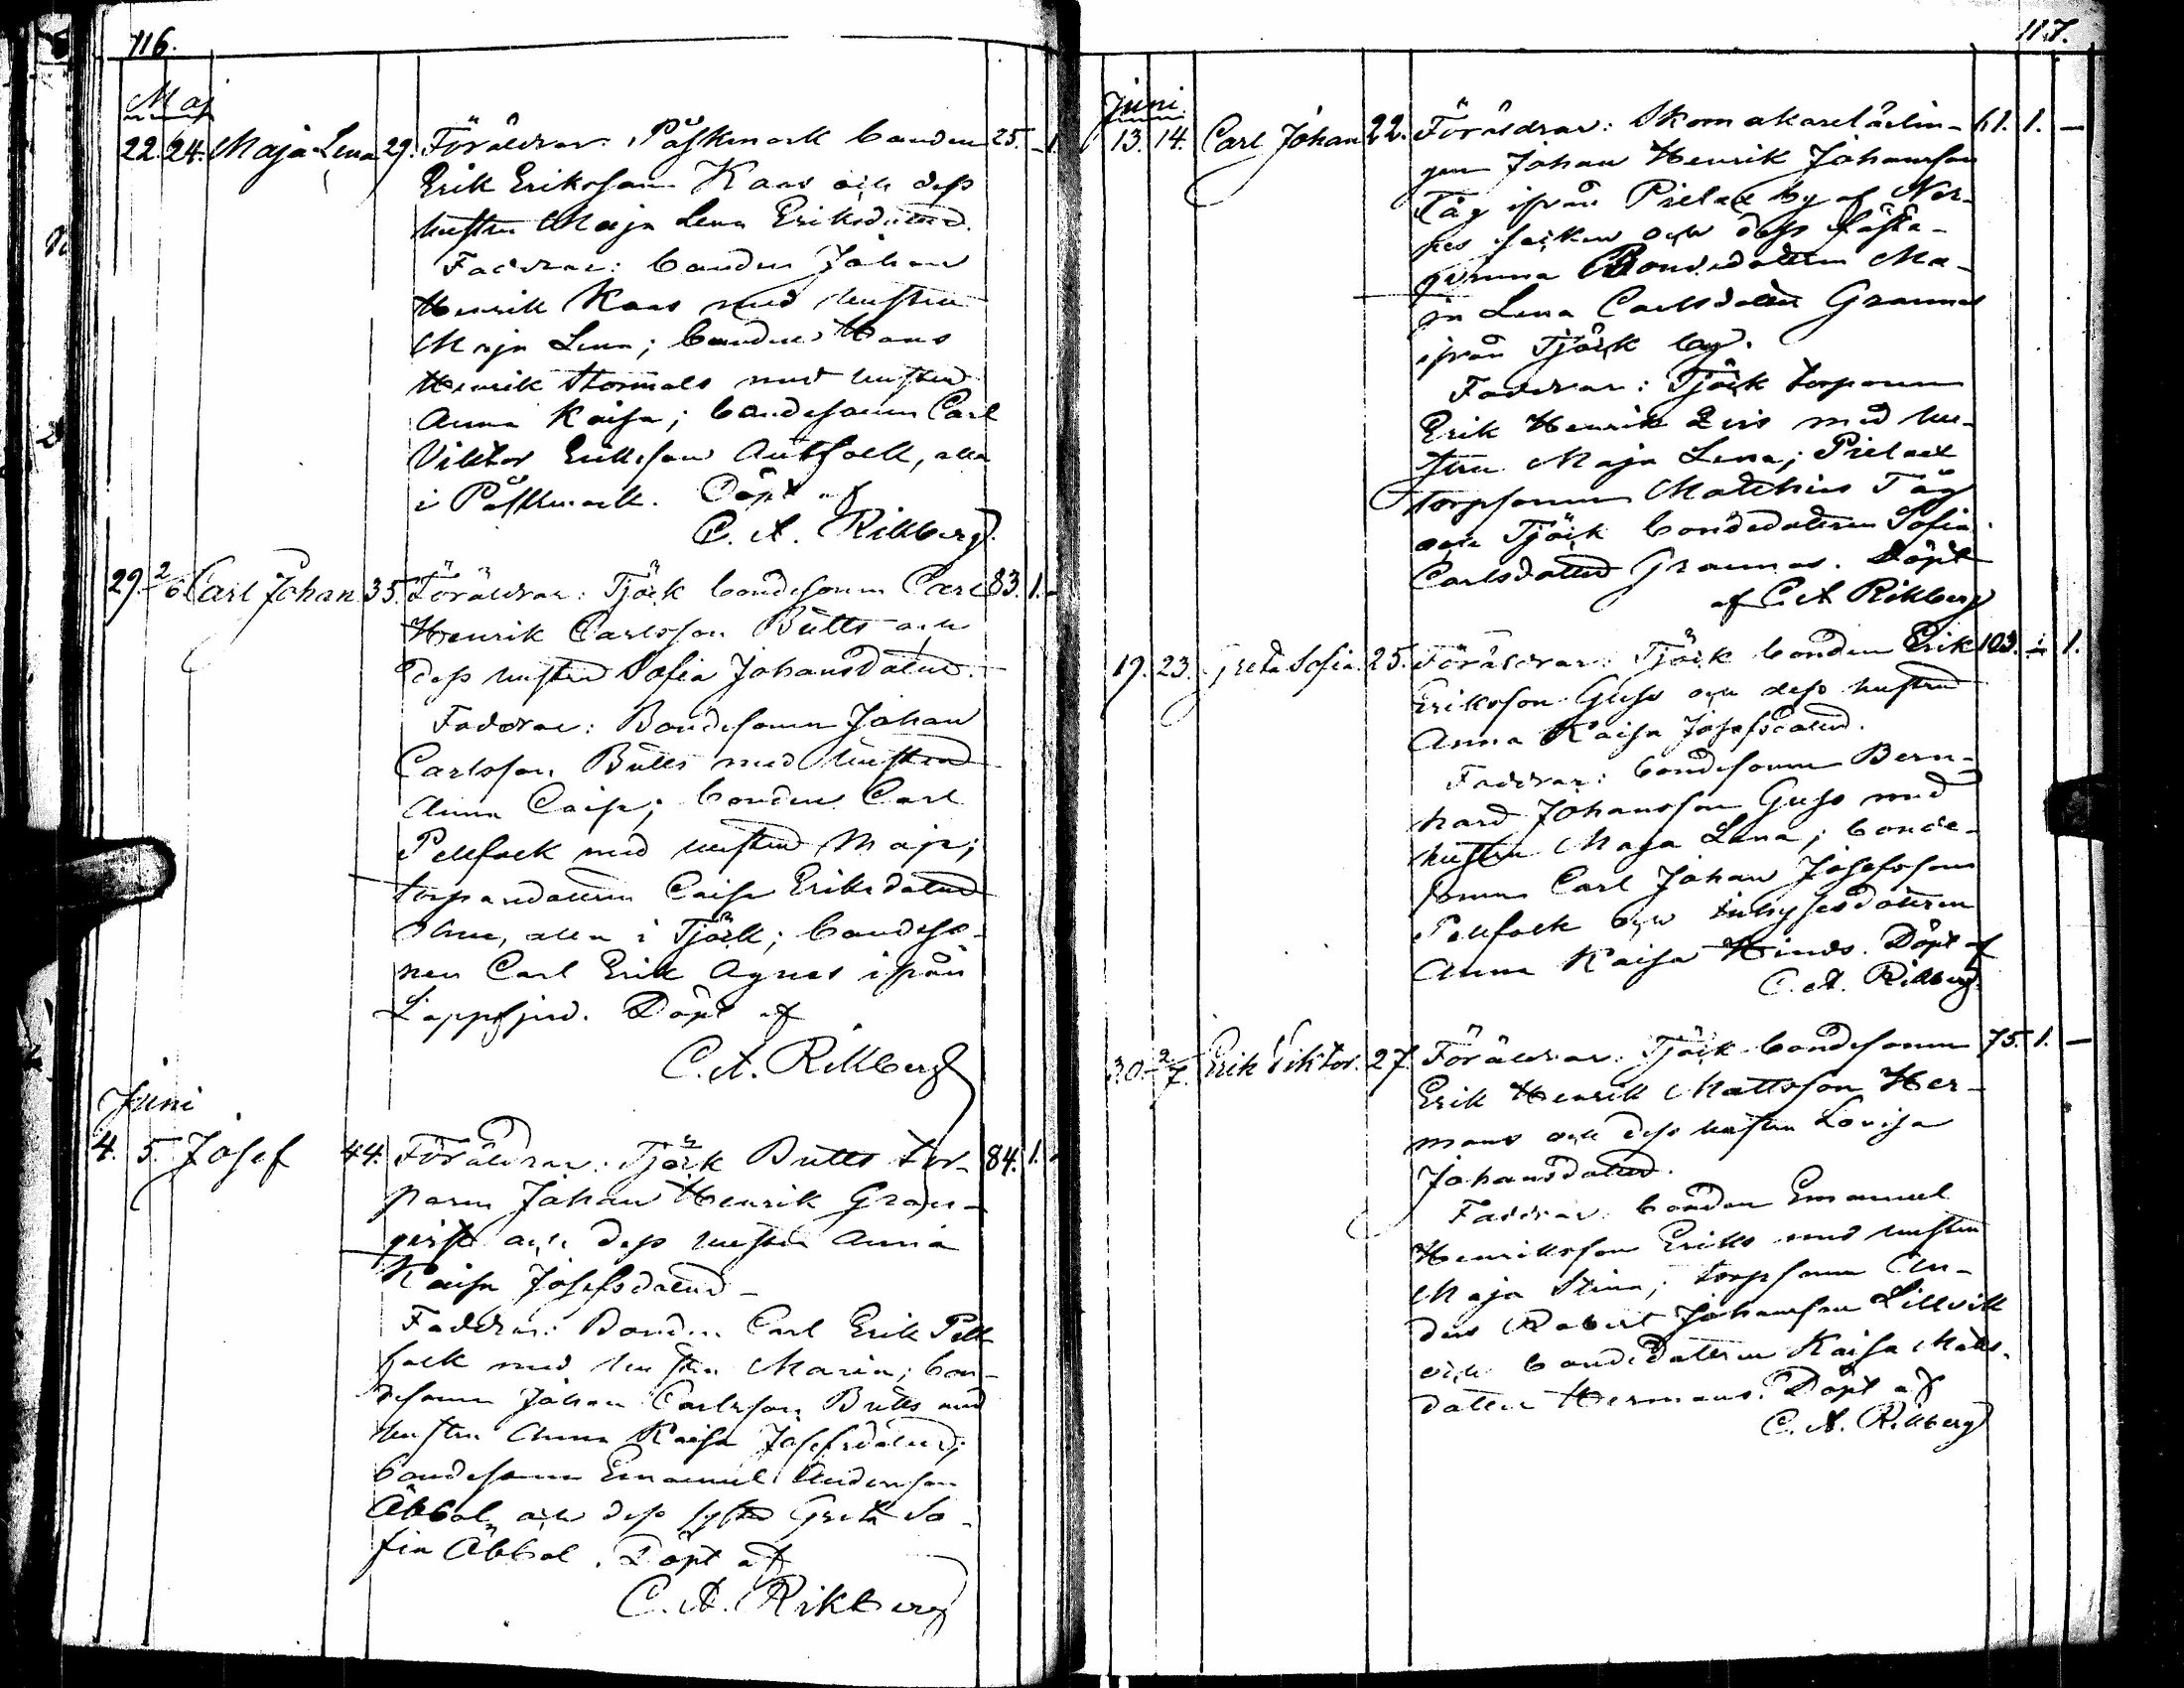 116.
Maj
22. 24. Maja Lena 29. Föräldrar: Påskmark bonden 25. - 1.
Erik Eriksson Kaas och dess
hustru Maja Lena Eriksdotter.
Faddrar: bonden Johan
Henrik Kaas med hustru
Maja Lena; bonden Hans
Henrik Stormals med hustru
Anna Kaisa; bondesonen Carl
Viktor Eriksson, alla
i Påskmark. Döpt af
C. A. Rikberg.
29. 2/6 Carl Johan 35. Föräldrar: Tjöck bondesonen Carl 83. 1. -
Henrik Carlsson Bütts och
dess hustru Sofia Johansdotter.
Faddrar: Bondesonen Johan
Carlsson Bütts med hustru
Anna Caisa; bonden Carl
Pellfolk med hustru Maja;
torparedottren Caisa Eriksdotter
alla i Tjöck; bondeso-
nen Carl Erik Agnes ifrån
Lappfjerd. Döpt af
C. A. Rikberg
Juni
4. 5. Josef 44. Föräldrar: Tjöck Bütts tor- 84. 1. -
paren Johan Henrik Gran-
qvist och dess hustru Anna
Kaisa Josefsdotter -
Faddrar: Bonden Carl Erik Pell
folk med hustru Maria; bon-
desonen Johan Carlsson Bütts med
hustru Anna Kaisa Josefsdotter;
bondesonen Emanuel Andersson
Åbbal och dess syster Greta So-
fia Åbbal. Döpt af
C. A. Rikberg
117.
Juni
13. 14. Carl Johan 22. Föräldrar: Skomakarelärlin- 61. 1. -
gen Johan Henrik Johansson
Tåg ifrån Pielax by af När-
pes socken och dess fäste-
qvinna Bondedottren Ma-
ja Lena Carlsdotter Grannas
ifrån Tjöck by.
Faddrar: Tjöck torparen
Erik Henrik med hu-
stru Maja Lena; Pielax
torpsonen Matthias Tåg
och Tjöck bondedottren Sofia
Carlsdotter Grannas. Döpt
af C. A. Rikberg
19. 23. Greta Sofia. 25. Föräldrar: Tjöck bonden Erik 103. - 1.
Eriksson Guss och dess hustru
Anna Kaisa Josefsdotter.
Faddrar: bondesonen Bern-
hard Johansson Guss med
hustru Maja Lena; bonde-
sonen Carl Johan Josefsson
Pellfolk och inhysesdottren
Anna Kaisa Hinds. Döpt af
C. A. Rikberg.
30. 2/7. Erik Viktor. 27. Föräldrar: Tjöck bondesonen 75. 1. -
Erik Henrik Mattsson Her-
mans och dess hustru Lovisa
Johansdotter.
Faddrar: bonden Emanuel
Henriksson Eriks med hustru
Maja Stina; torpsonen An-
ders Robert Johansson Lillvik
och bondedottren Kaisa Matts-
dotter Hermans. Döpt af
C. A. Rikberg